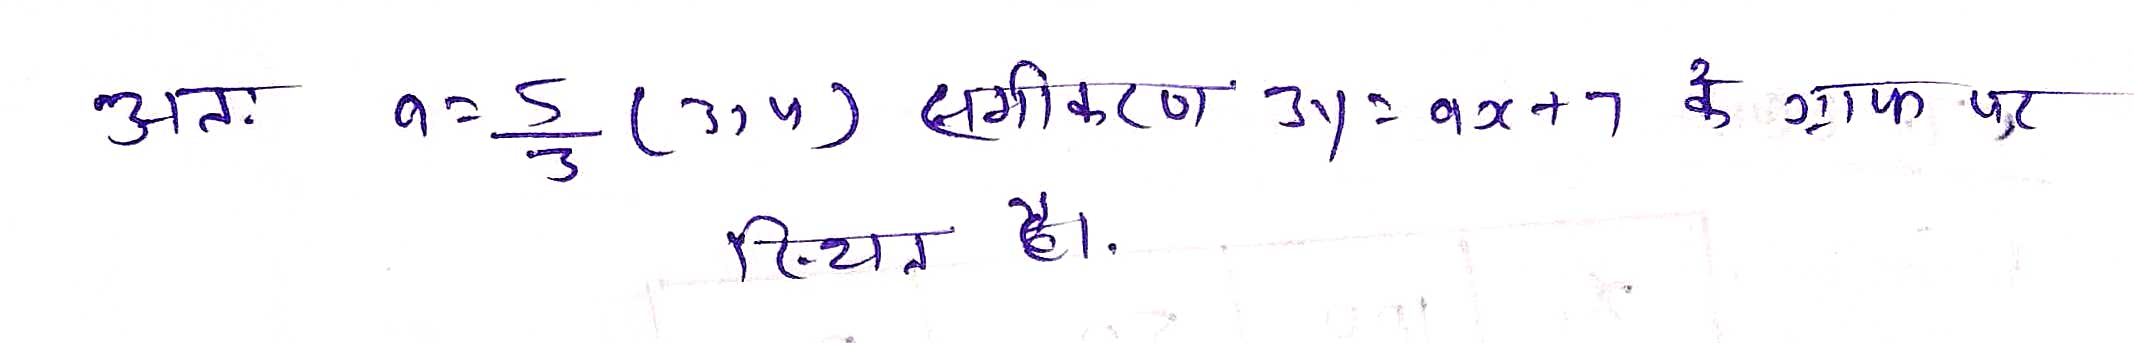 अतः a = 5/3 (3, 4) समीकरण 3y = ax + 7 के ग्राफ पर
स्थित है।.